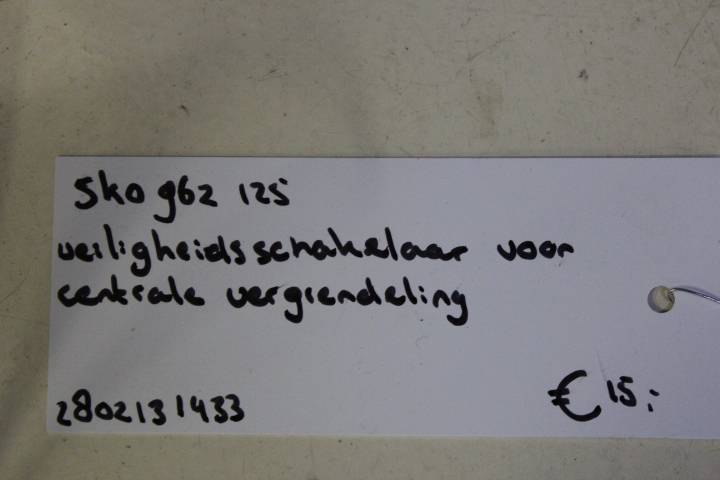 5k0 962 125
veiligheidsschakelaar voor
centrale vergrendeling
2802131433
€ 15,-